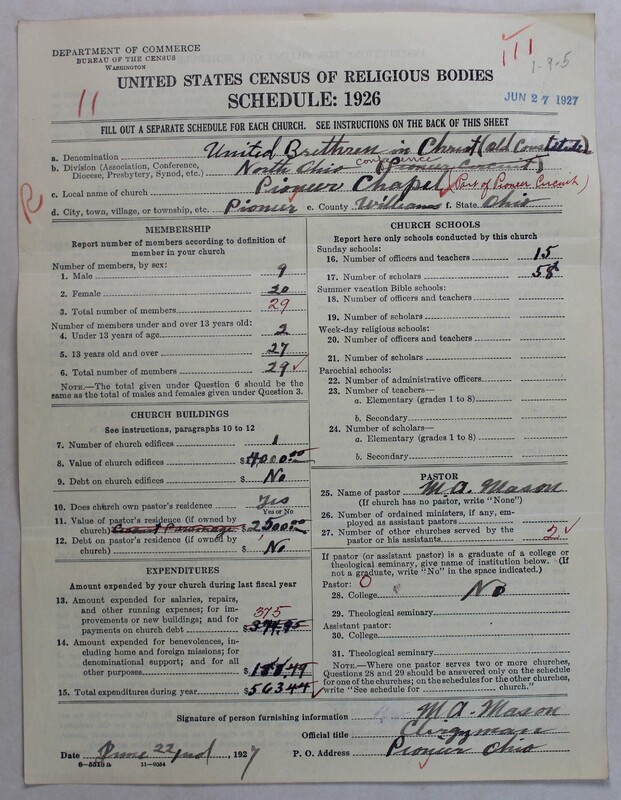 DEPARTMENT OF COMMERCE
BUREAU OF THE CENSUS
WASHINGTON
111
1-9-5
11
UNITED STATES CENSUS OF RELIGIOUS BODIES
SCHEDULE: 1926
JUN 27 1927
FILL OUT A SEPARATE SCHEDULE FOR EACH CHURCH. SEE INSTRUCTIONS ON THE BACK OF THIS SHEET
a. Denomination United Brethren in Christ (old Constitution)
b. Division (Association, Conference, Diocese, Presbytery, Synod, etc.) North Ohio conference (Pioneer Circuit)
c. Local name of church Pioneer Chapel (Part of Pioneer Circuit)
R
d. City, town, village, or township, etc. Pioneer e. County Williams f. State Ohio
MEMBERSHIP
Report number of members according to definition of
member in your church
Number of members, by sex:
1. Male 9
2. Female 20
3. Total number of members 29
Number of members under and over 13 years old:
4. Under 13 years of age 2
5. 13 years old and over 27
6. Total number of members 29 ✓
NOTE.—The total given under Question 6 should be
same as the total of males and females given under Question 3.
CHURCH BUILDINGS
See instructions, paragraphs 10 to 12
7. Number of church edifices 1
8. Value of church edifices $4,000.00
9. Debt on church edifices $ No
10. Does church own pastor's residence Yes
Yes or No
11. Value of pastor's residence (if owned by
church) $2,500.00
12. Debt on pastor's residence (if owned by
church) $ No
EXPENDITURES
Amount expended by your church during last fiscal year
13. Amount expended for salaries, repairs,
and other running expenses; for im-
provements or new buildings; and for
payments on church debt $ 375 374.95
14. Amount expended for benevolences, in-
cluding home and foreign missions; for
denominational support; and for all
other purposes $188.49
15. Total expenditures during year $563.44 ✓
CHURCH SCHOOLS
Report here only schools conducted by this church
Sunday schools:
16. Number of officers and teachers 15
17. Number of scholars 58
Summer vacation Bible schools:
18. Number of officers and teachers
19. Number of scholars
Week-day religious schools:
20. Number of officers and teachers
21. Number of scholars
Parochial schools:
22. Number of administrative officers
23. Number of teachers—
a. Elementary (grades 1 to 8)
b. Secondary
24. Number of scholars—
a. Elementary (grades 1 to 8)
b. Secondary
PASTOR
25. Name of pastor M. A. Mason
(If church has no pastor, write "None")
26. Number of ordained ministers, if any, em-
ployed as assistant pastors
27. Number of other churches served by the
pastor or his assistants 2 ✓
If pastor (or assistant pastor) is a graduate of a college or
theological seminary, give name of institution below. (If
not a graduate, write "No" in the space indicated.)
Pastor: O
28. College No
29. Theological seminary
Assistant pastor:
30. College
31. Theological seminary
NOTE.—Where one pastor serves two or more churches,
Questions 28 and 29 should be answered only on the schedule
for one of the churches; on the schedules for the other churches,
write "See schedule for church."
Signature of person furnishing information M. A. Mason
Official title Clergyman
Date June 22nd, 1927 P. O. Address Pioneer Ohio
8—5515a 11—9554